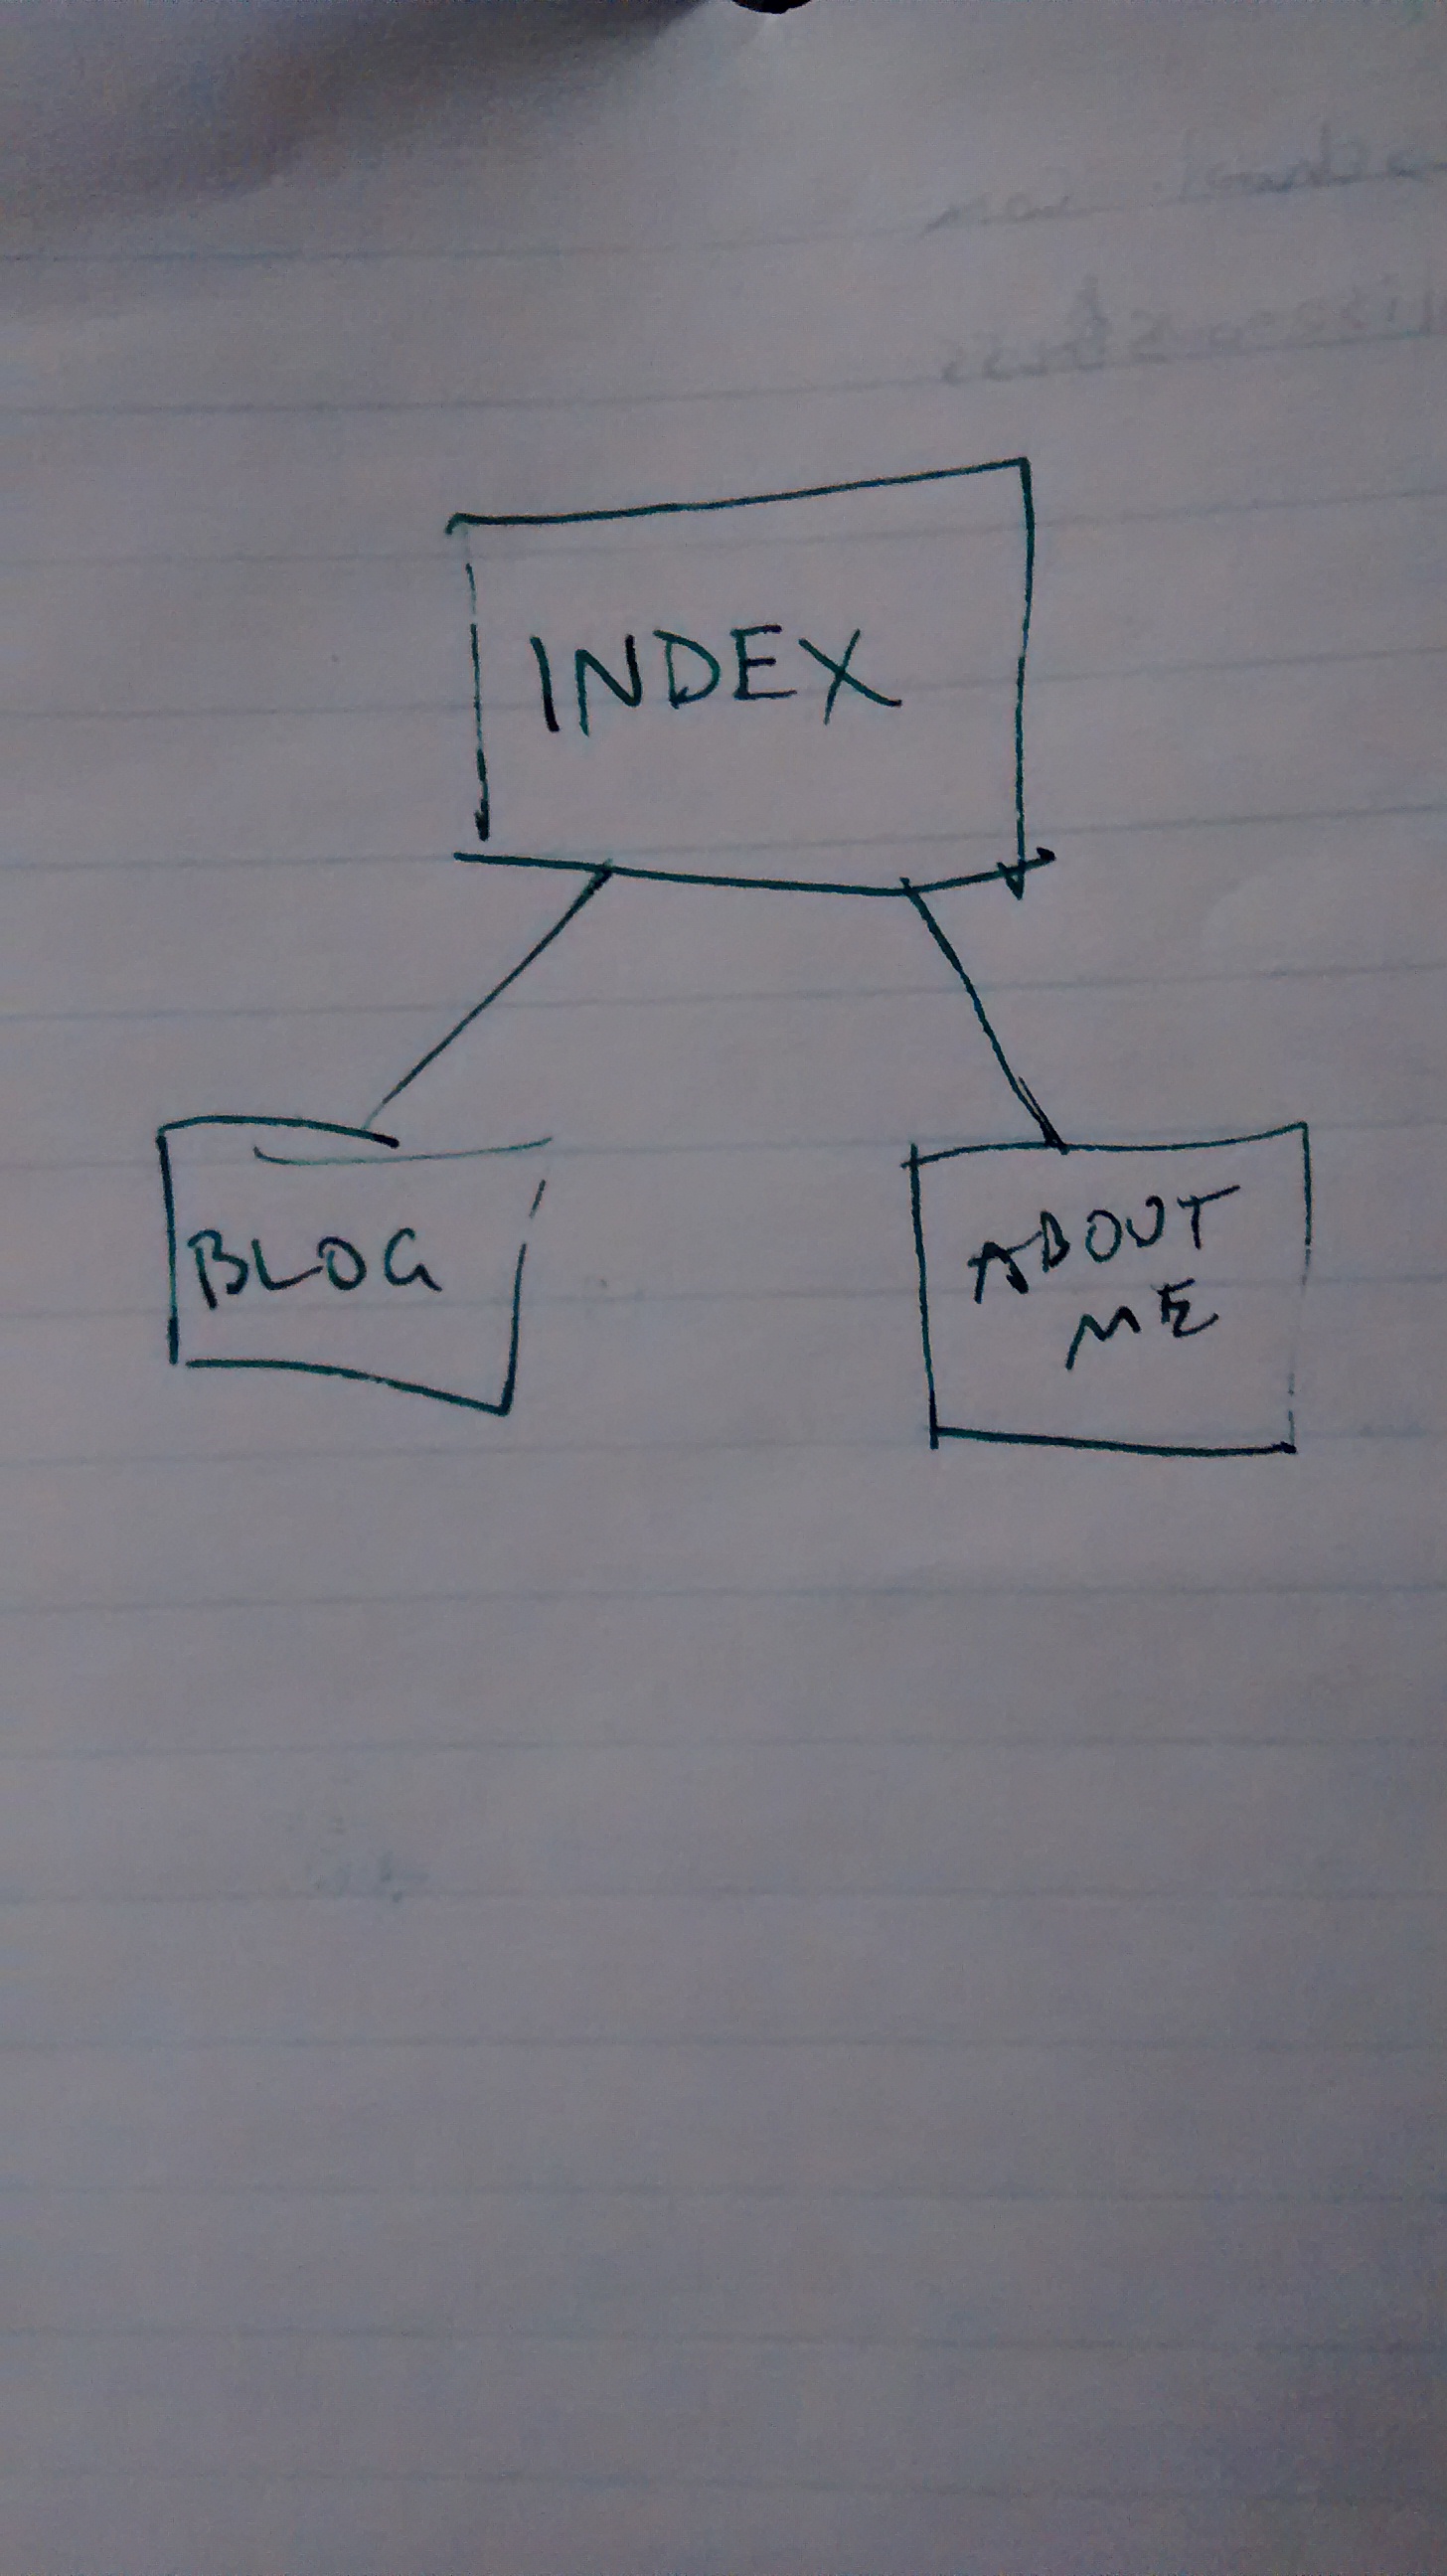 INDEX
BLOG
ABOUT
ME